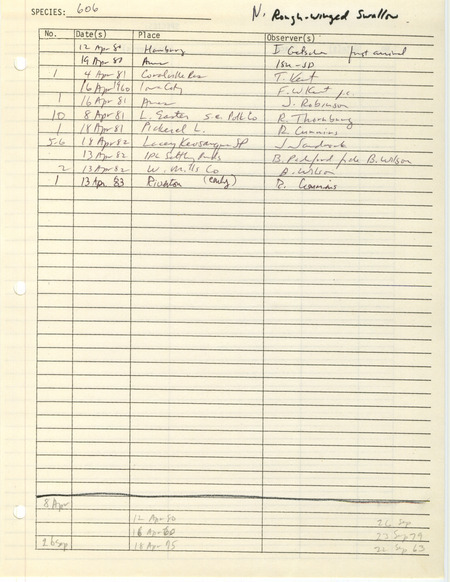 SPECIES: 606 N. Rough-winged Swallow
No. Date(s) Place Observer(s)
12 Apr 80 Hamburg I Getscher first arrival
19 Apr 80 Ames ISU-JD
1 4 Apr 81 Coralville Res T. Kent
16 Apr 1960 Iowa City F.W. Kent
1 16 Apr 81 Ames J. Robinson
10 8 Apr 81 L. Easter s.e. Polk Co R. Thornburg
1 18 Apr 81 Pickerel L. R. Cummins
5-6 18 Apr 82 Lacey Keosauqua SP J. Sandrock
13 Apr 82 IPL Settling Ponds B. Padelford fide B. Wilson
2 13 Apr 82 W. Mills Co B. Wilson
1 13 Apr 83 Riverton (early) R. Cummins
8 Apr
12 Apr 80 26 Sep
16 Apr 60 23 Sep 79
26 Sep 18 Apr 95 22 Sep 63